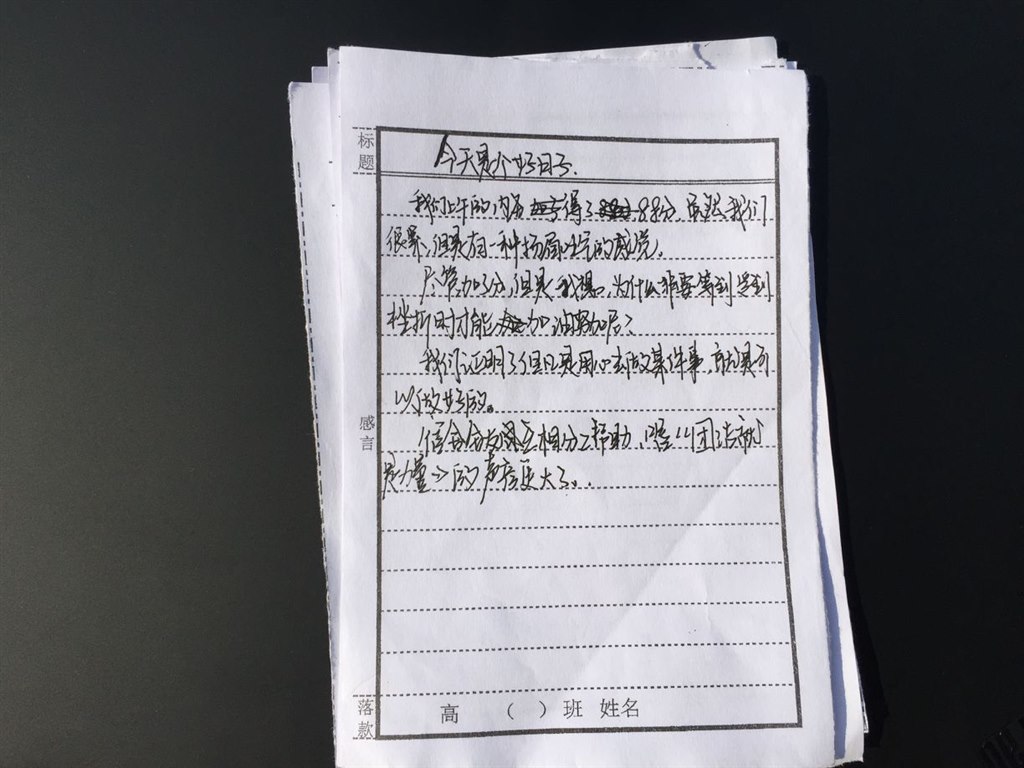 标题
今天是个好日子.
我们上午的内务得了88分,虽然我们
很累,但是有一种扬眉吐气的感觉。
尽管加了分,但是我想,为什么非要等到受到
挫折时才能加油努力呢?
感言
我们证明了但凡是用心去做某件事,就是可
以做好的。
宿舍舍友互相分工帮助,喊“团结就
是力量”的声音更大了。
落款
高 ( ) 班 姓名